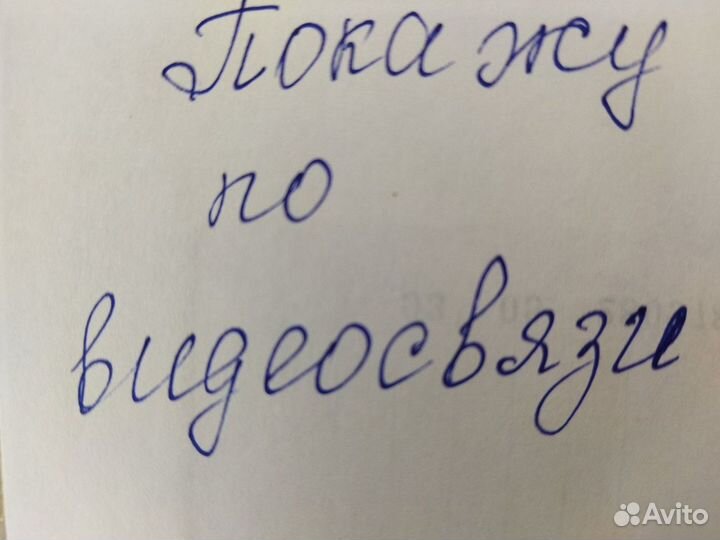 Покажу
по
видеосвязи
Avito